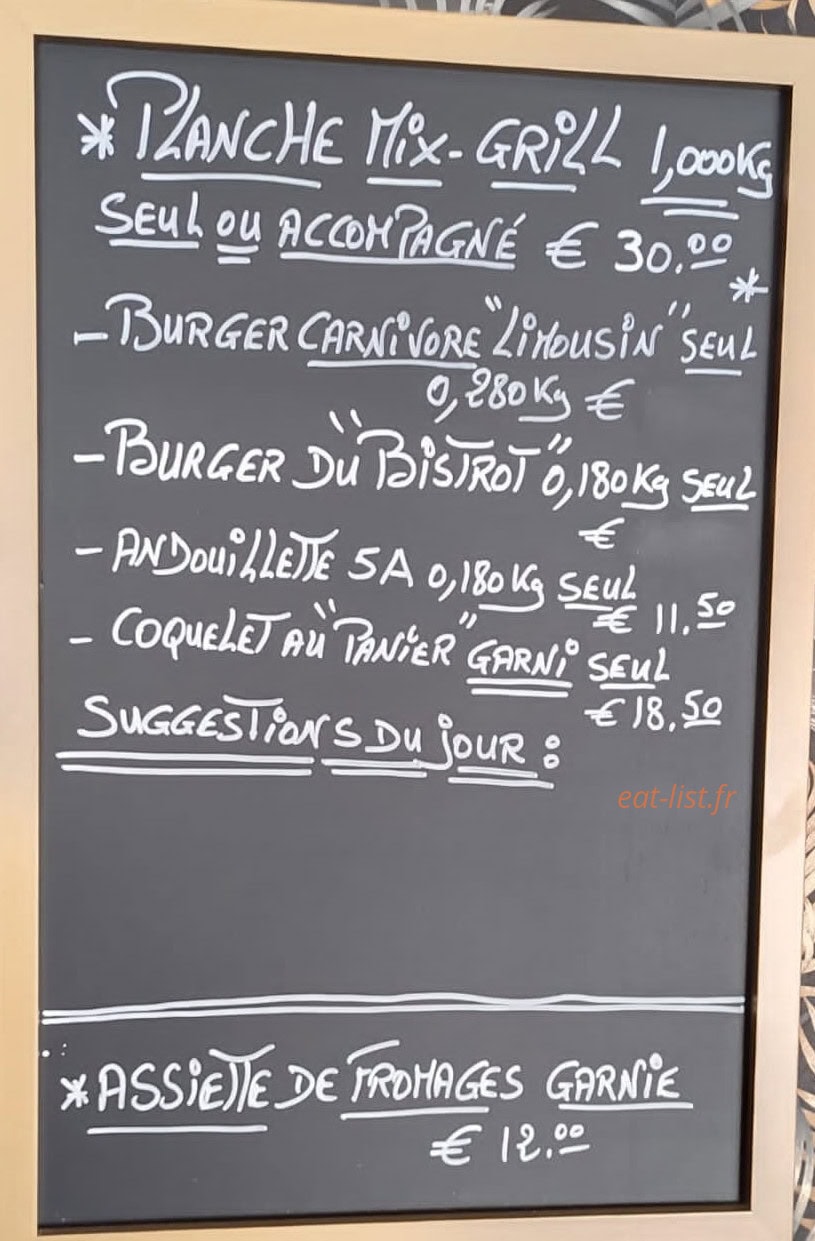 * PLANCHE MiX-GRiLL 1,000Kg
SEUL OU ACCOMPAGNÉ € 30.00 *
- BURGER CARNiVORE "LiMOUSiN" SEUL
0,280Kg €
- BURGER DU "BiSTROT" 0,180Kg SEUL
€
- ANDOUiLLETTE 5A 0,180Kg SEUL
€ 11.50
- COQUELET AU "PANiER" GARNi SEUL
€ 18.50
SUGGESTiONS DU jOUR :
eat-list.fr
* ASSiETTE DE FROMAGES GARNiE
€ 12.00